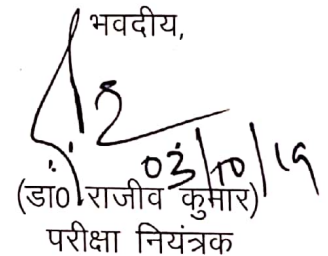 भवदीय,
03/10/19
(डा0 राजीव कुमार)
परीक्षा नियंत्रक